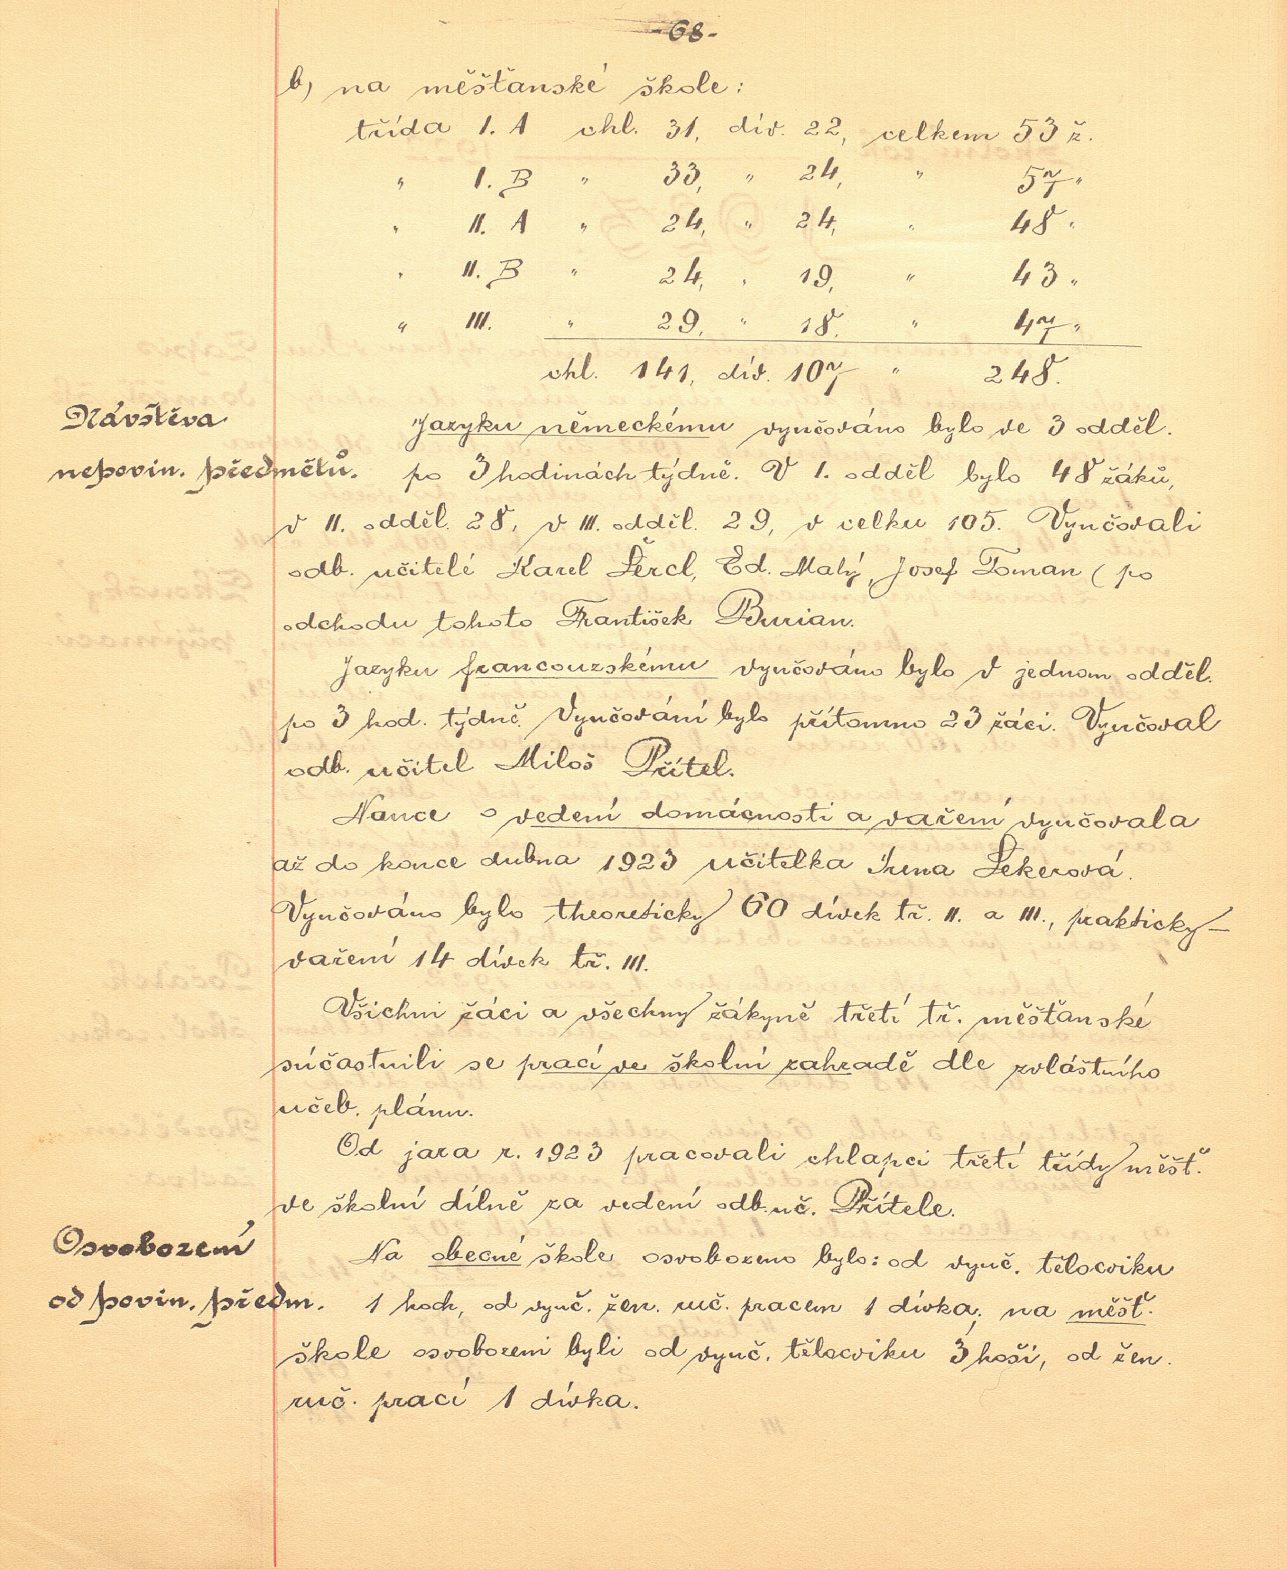 -68-
b) na měšťanské škole:
třída I. A chl. 31, dív. 22, celkem 53 ž.
" I. B " 33, " 24, " 57 "
" II. A " 24, " 24, " 48 "
" II. B " 24, " 19, " 43 "
" III. " 29, " 18. " 47 "
chl. 141, dív. 107 " 248.
Návštěva
nepovin. předmětů.
Jazyku německému vyučováno bylo ve 3 odděl.
po 3 hodinách týdně. V I. odděl bylo 48 žáků,
v II. odděl. 28, v III. odděl. 29, v celku 105. Vyučovali
odb. učitelé Karel Šercl, Ed. Malý, Josef Toman (po
odchodu tohoto František Burian.
Jazyku francouzskému vyučováno bylo v jednom odděl.
po 3 hod. týdně. Vyučování bylo přítomno 23 žáci. Vyučoval
odb. učitel Miloš Přítel.
Nauce o vedení domácnosti a vaření vyučovala
až do konce dubna 1923 učitelka Irena Šekerová.
Vyučováno bylo theoreticky 60 dívek tř. II. a III., prakticky –
vaření 14 dívek tř. III.
Všichni žáci a všechny žákyně třetí tř. měšťanské
súčastnili se prací ve školní zahradě dle zvláštního
učeb. plánu.
Od jara r. 1923 pracovali chlapci třetí třídy měšť.
ve školní dílně za vedení odb. uč. Přítele.
Osvobození
od povin. předm.
Na obecné škole osvobozeno bylo: od vyuč. tělocviku
1 hoch, od vyuč. žen. ruč. pracem 1 dívka; na měšť.
škole osvobozeni byli od vyuč. tělocviku 3 hoši, od žen.
ruč. prací 1 dívka.